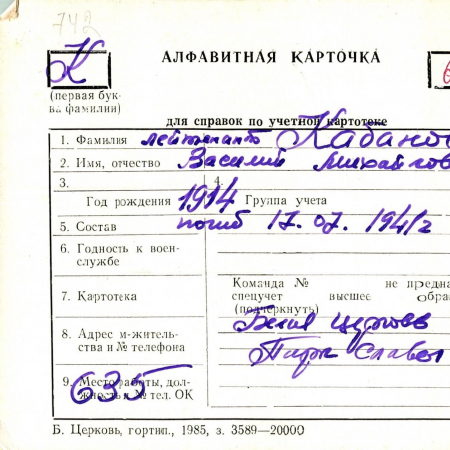 742
К
АЛФАВИТНАЯ КАРТОЧКА
(первая бук-
ва фамилии)
для справок по учетной картотеке
1. Фамилия лейтенант Кабанов
2. Имя, отчество Василий Михайлов
3.
4.
Год рождения 1914 Группа учета
5. Состав погиб 17.07.1941г
6. Годность к воен-
службе
Команда № не предна
7. Картотека
спецучет высшее обра
(подчеркнуть)
Белая церковь
8. Адрес м-житель-
ства и № телефона
Парк Славы
9. Место работы, дол-
жность и № тел. ОК
635
Б. Церковь, гортип., 1985, з. 3589—20000